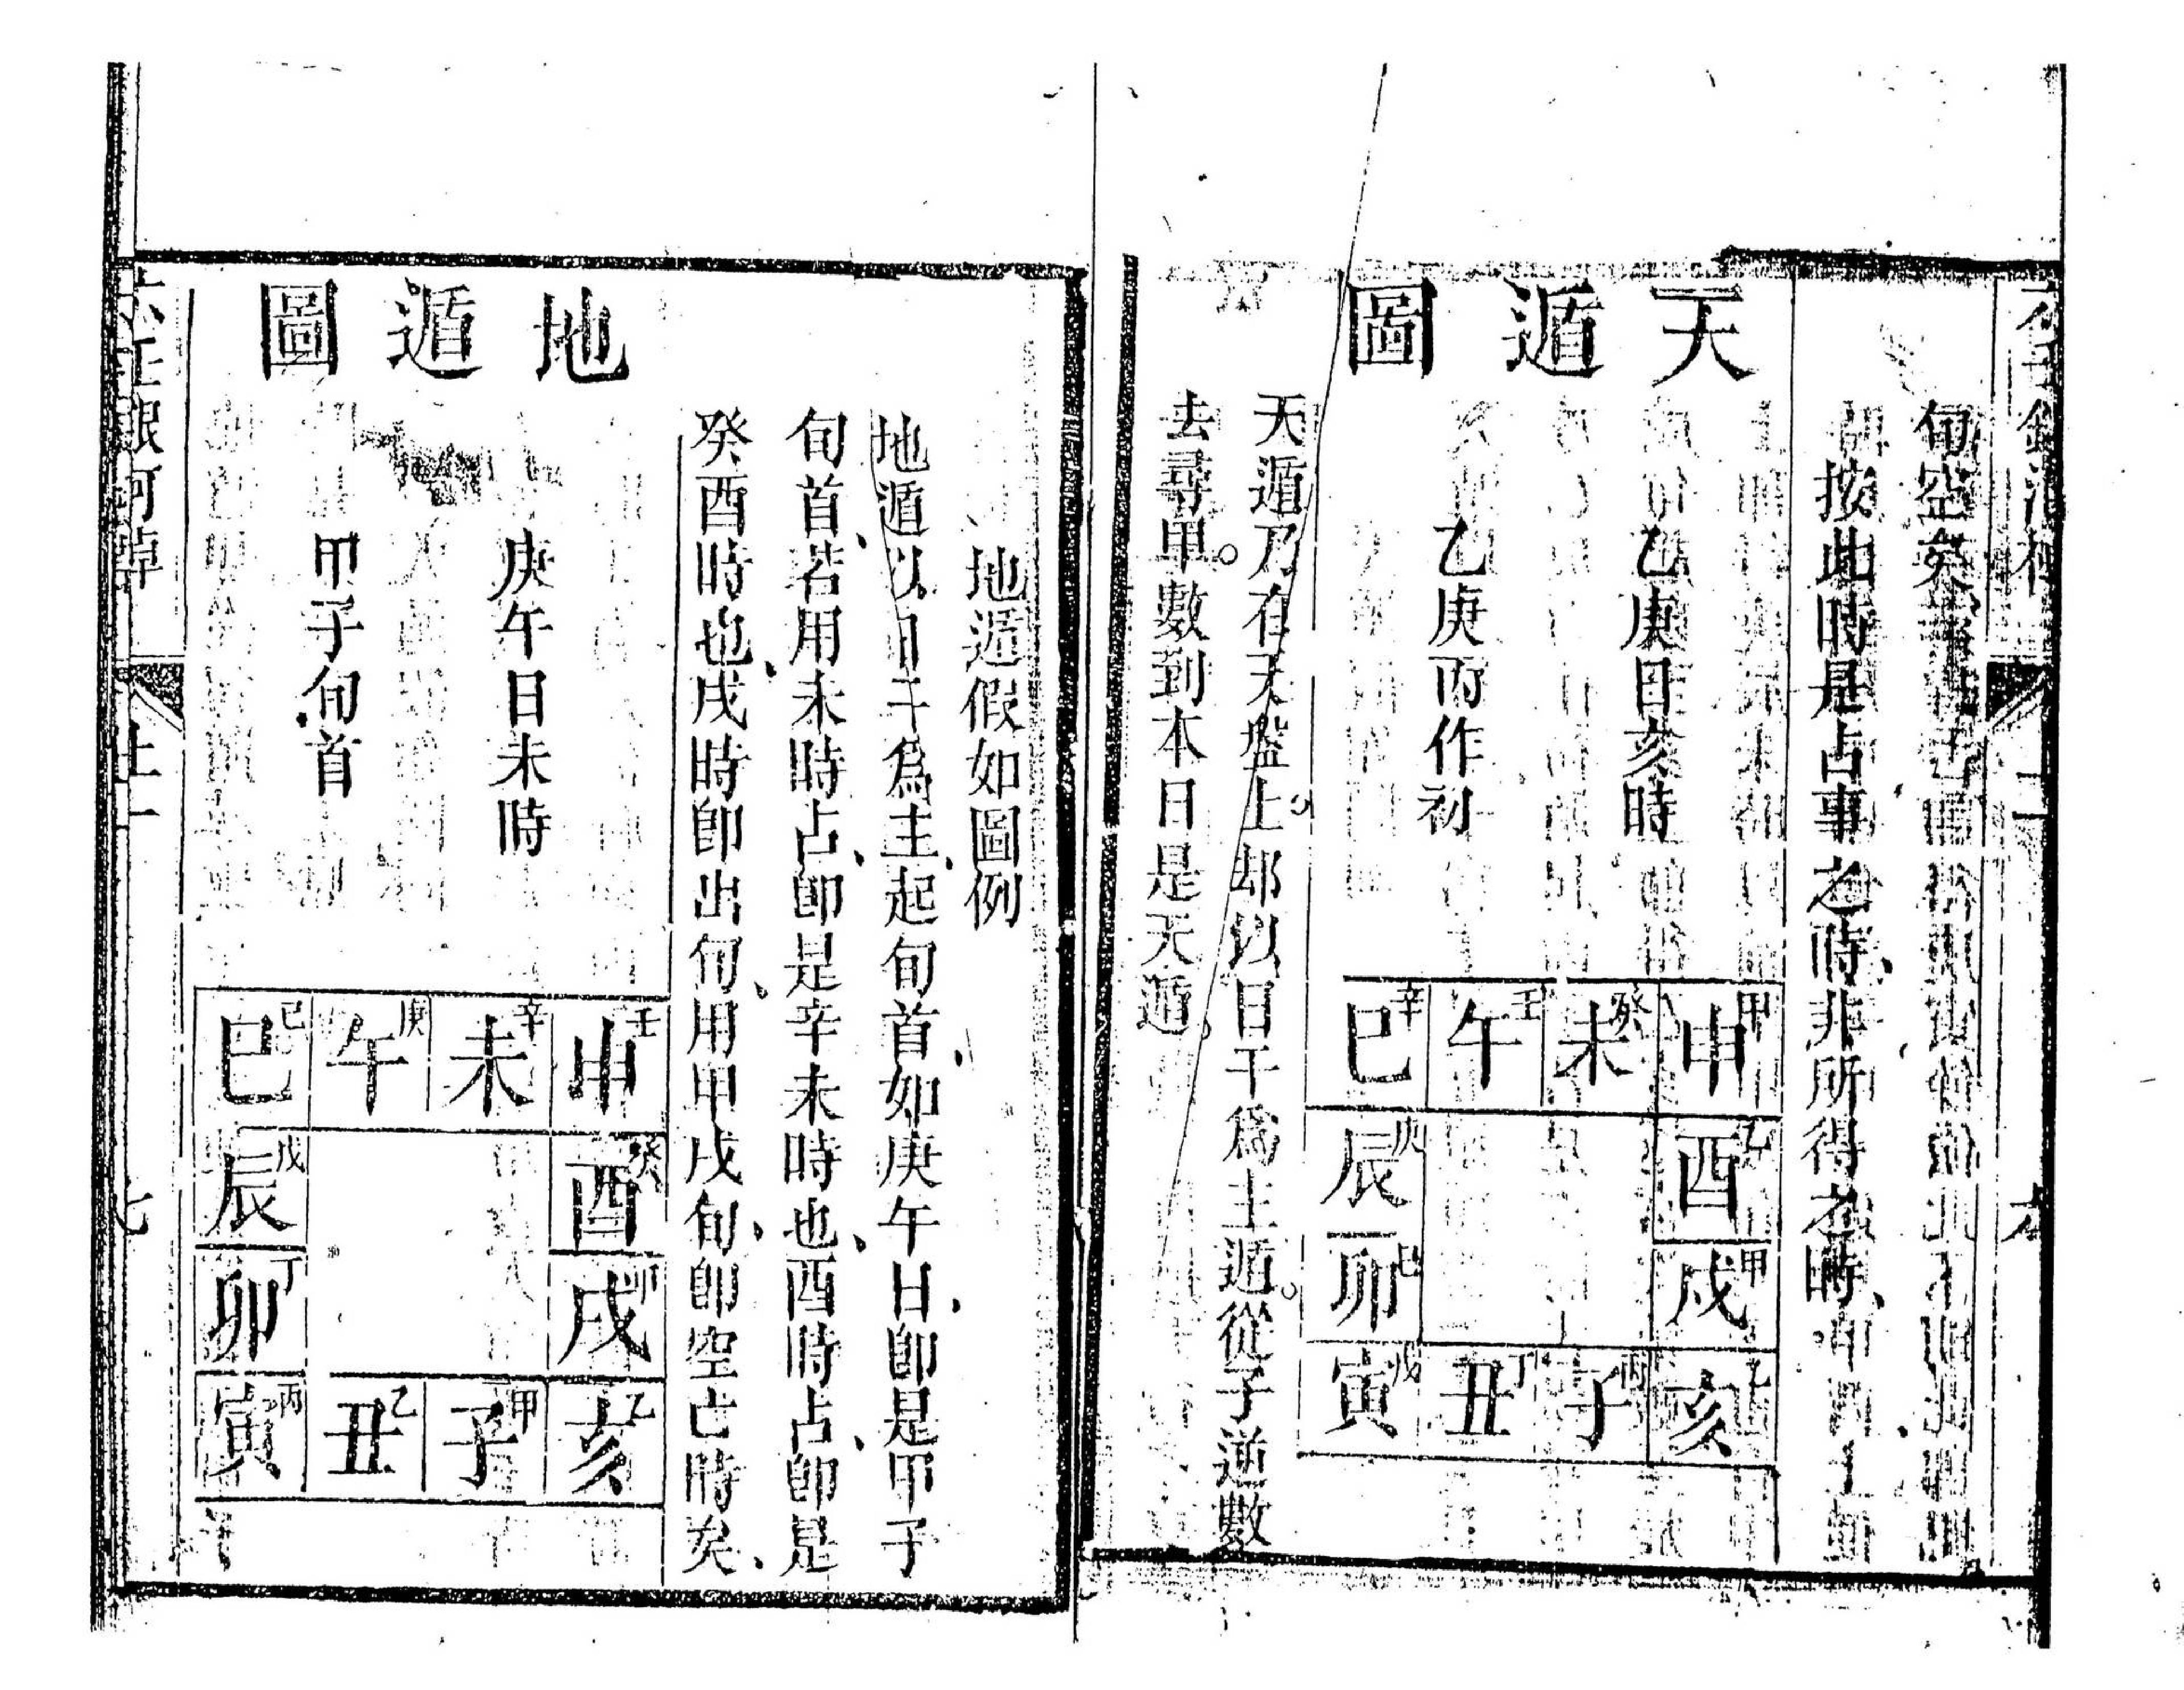 旬空矣
按此時是占事之時非所得之時
天遁圖
乙庚日亥時
乙庚丙作初
辛巳 壬午 癸未 甲申
辰 乙酉
己卯 甲戌
戊寅 丁丑 丙子 乙亥
天遁乃在天盤上却以日干爲主遁從子逆數
去尋甲數到本日是天遁
地遁假如圖例
地遁以日干爲主起旬首如庚午日即是甲子
旬首若用未時占即是辛未時也酉時占即是
癸酉時也戌時即出旬用甲戌旬即空亡時矣
地遁圖
庚午日未時
甲子旬首
己巳 庚午 辛未 壬申
戊辰 癸酉
丁卯 戌
丙寅 乙丑 甲子 乙亥
六壬銀河棹